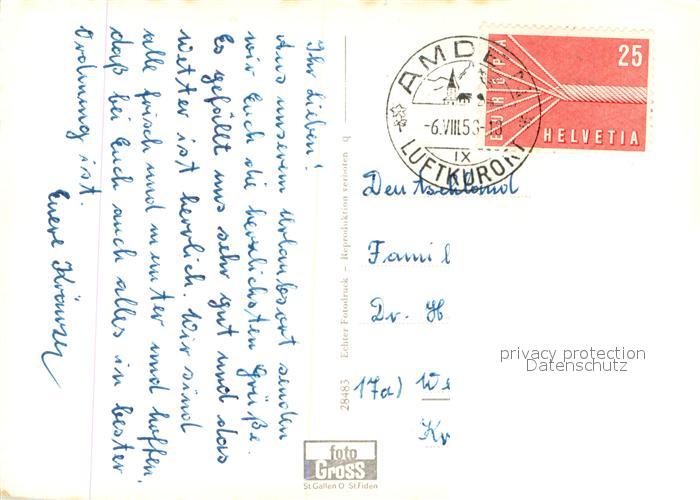 Ihr Lieben!
Aus unserem Urlaubsort senden
wir Euch die herzlichsten Grüße.
Es gefällt uns sehr gut und das
Wetter ist herrlich. Wir sind
alle frisch und munter und hoffen,
daß bei Euch auch alles in bester
Ordnung ist.
Euere
28483 Echter Fotodruck – Reproduktion verboten q
foto
Gross
St. Gallen O St. Fiden
AMDEN
-6.VIII.58-18
IX
LUFTKURORT
EUROPA
25
HELVETIA
Deutschland
Famil
Dr. H
17a) We
Kr
privacy protection
Datenschutz